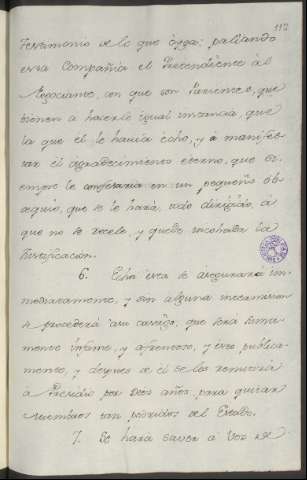 112
Testimonio de lo que oyga: pactando
esta Compañia el Pretendiente al
Negociante, con que son Parientes, que
vienen à hacerle igual instancia, que
la que él le havia echo, y à manifes-
tar él agradecimiento eterno, que si-
empre le confesaria en un pequeño ob-
sequio, que se le hará, todo dirigido, à
que no se recele, y quede incohada la
Justificacion.
6. Echa esta se asegurará in-
mediatamente, y sin alguna intermision
se procederá à su castigo, que será suma-
mente infame, y afrentoso, y esto publica-
mente, y despues de él se los remitirá
à Presidio por Dos años, para quitar
miembros tan podridos del Estado.
7. Se hará saver à